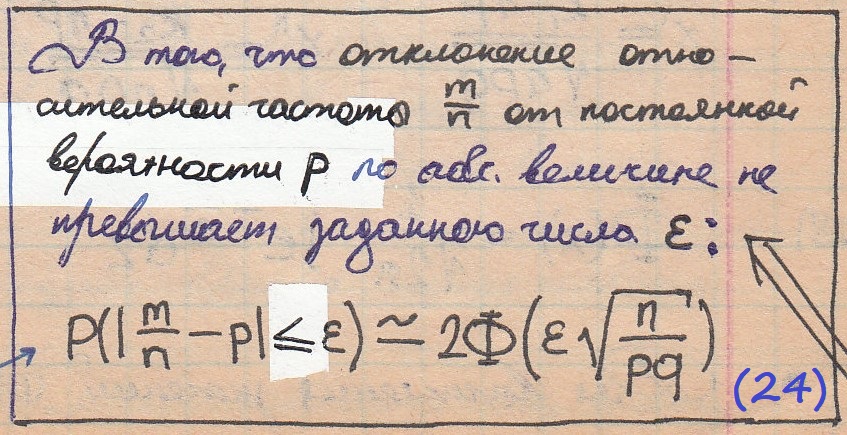 В того, что отклонение отно-
сительной частоты m/n от постоянной
вероятности p по абс. величине не
превышает заданного числа ε:
P(|m/n - p| ≤ ε) ≃ 2Φ(ε√(n/pq))
(24)